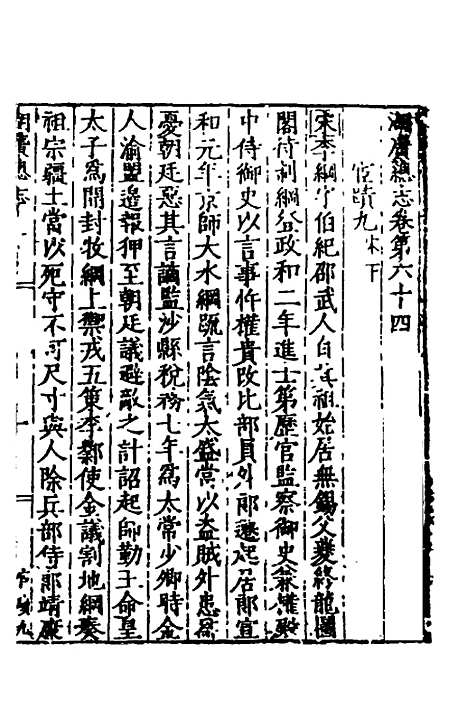 湖廣總志卷第六十四
宦蹟九 宋下
宋李綱字伯紀邵武人自其祖始居無錫父夔終龍圖
閣待制綱登政和二年進士第歷官監察御史兼權殿
中侍御史以言事忤權貴改比部員外郎遷起居郎宣
和元年京師大水綱疏言陰氣太盛當以盗賊外患爲
憂朝廷惡其言謫監沙縣稅務七年爲太常少卿時金
人渝盟邉報狎至朝廷議避敵之計詔起師勤王命皇
太子爲開封牧綱上禦戎五策李鄴使金議割地綱奏
祖宗疆土當以死守不可尺寸與人除兵部侍郎靖康
湖廣總志
宦蹟九